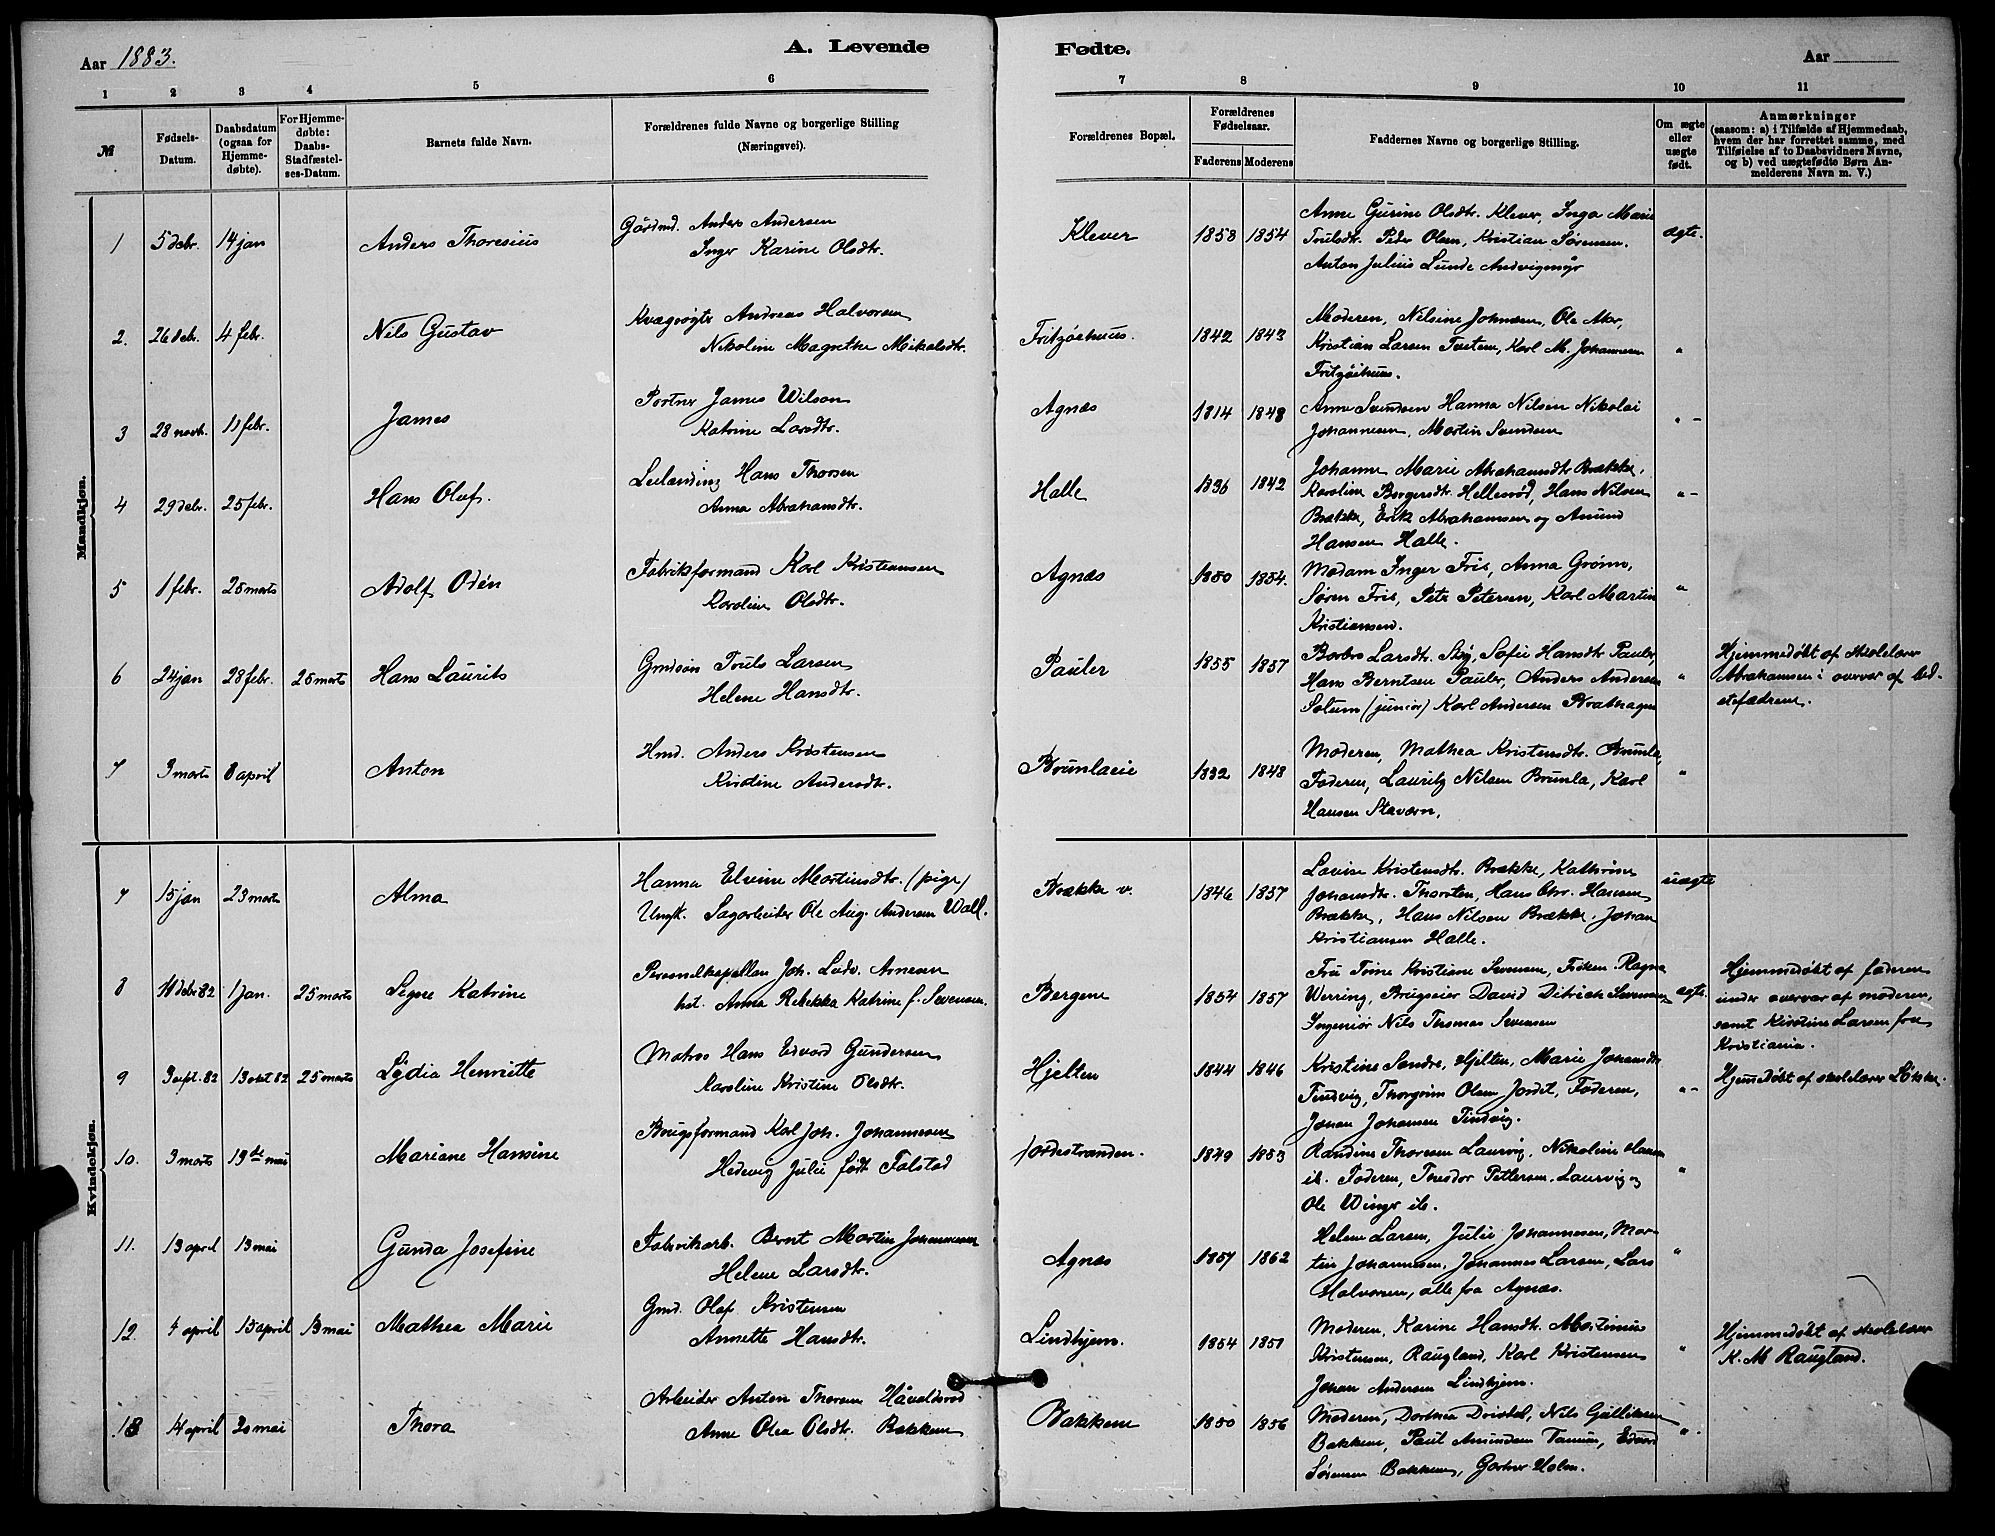 Aar 1883.
A. Levende
Fødte.
Aar
1 2 3 4 5 6 7 8 9 10 11
№
Fødsels-
Datum.
Daabsdatum
(ogsaa for
Hjemme-
døbte).
For Hjemme-
døbte:
Daabs-
Stadfæstel-
ses-Datum.
Barnets fulde Navn.
Forældrenes fulde Navne og borgerlige Stilling
(Næringsvei).
Forældrenes Bopæl.
Forældrenes
Fødselsaar.
Faderens Moderens
Faddernes Navne og borgerlige Stilling.
Om ægte
eller
uægte
født.
Anmærkninger
(saasom: a) i Tilfælde af Hjemmedaab,
hvem der har forrettet samme, med
Tilføielse af to Daabsvidners Navne,
og b) ved uægtefødte Børn An-
melderens Navn m. V.)
Mandkjøn.
1 5 debr. 14 jan Anders Thoresius
Gårdmd. Anders Andersen
Inger Karine Olsdtr.
Klever 1853 1854
Anne Gurine Olsdtr. Klever, Inga Marie
Trulsdtr. Peder Olsen, Kristian Sørensen.
Anton Julius Lunde Andvigmyr
ægte.
2. 26 debr. 4 febr. Nils Gustav
Kvægrøgter Andreas Halvorsen
Nikoline Magrethe Mikalsdtr.
Fritzøehuus. 1842 1843
Moderen, Nilsine Johnsen, Ole Aker,
Kristian Larsen Tveten, Karl M. Johannesen
Fritzøehuus.
"
3 28 novb. 11 febr. James
Portner James Wilson
Katrine Larsdtr.
Agnæs 1814 1848
Anne Svendsen Hanna Nilsen Nikolai
Johannesen, Martin Svendsen
" -
4 29 debr. 25 febr. Hans Olaf.
Leilænding Hans Thorsen
Anna Abrahamsdtr.
Halle 1836 1842
Johanne Marie Abrahamsdtr Brække,
Karoline Borgersdtr. Hellenød, Hans Nilsen
Brække, Erik Abrahamsen og Amund
Hansen Halle.
" -
5 1 febr. 25 marts Adolf Odin
Fabriksformand Karl Kristiansen
Karoline Olsdtr.
Agnæs 1850 1854.
Madam Inger Fris, Anna Grønn,
Søren Fris, Petr Petersen, Karl Martin
Kristiansen.
"
6 24 jan 28 febr. 25 marts Hans Laurits
Grndsøn Truls Larsen
Helene Hansdtr.
Pauler 1855 1857
Barbro Larsdtr. Sky, Sofie Hansdtr Pauler,
Hans Berntsen Pauler, Anders Andersen
Solum (junior) Karl Andersen
"
Hjemmedøbt af skolelærer
Abrahamsen i overvær af bed-
stefædrene.
7 3 marts 8 april Anton
Hmd. Anders Kristensen
Kirstine Andersdtr.
Brunlaeie 1832 1848
Moderen, Mathea Kristensdtr. Brunla,
Faderen, Lauritz Nilsen Brunla, Karl
Hansen Staværn.
"
Kvindekjøn.
7 15 jan 23 marts Alma
Hanna Elvine Martinsdtr. (pige)
Ungk. Sagarbeider Ole Aug. Andersen Wall.
Brække v. 1846 1857
Lovise Kristensdtr. Brække, Kathrine
Johansdtr. Thorsten, Hans Chr. Hansen
Brække, Hans Nilsen Brække, Johan
Kristiansen Halle.
uægte
8 11 debr 82 1 jan. 25 marts Signe Katrine
Personelkapellan Joh. Ludv. Arnesen
hst. Anna Rebekka Katrine f. Svensen.
Bergene 1854 1857
Fru Trine Kristiane Svensen, Frøken Ragna
Werring, Brugseier David Ditrich Svensen
Ingeniør Nils Thomas Svensen
ægte
Hjemmedøbt af faderen
under overvær af moderen,
samt Kirstine Larsen fra
Kristiania.
9 3 sept. 82 13 okt 82 25 marts Lydia Henriette
Matros Hans Edvard Gundersen
Karoline Kristine Olsdtr.
Hjelten 1844 1846
Kristine Sandre, Hjelten, Marie Johansdtr
Tindvig, Thorgrim Olsen Jordet, Faderen,
Johan Johansen Tindvig.
" -
Hjemmedøbt af skolelærer Løkke.
10. 3 marts 13de mai Mariane Hansine
Brugsformand Karl Joh. Johannesen
Hedevig Julie født Falstad
Jordestranden. 1849 1853
Randine Thoresen Laurvig, Nikoline Hansen
ib. Faderen, Theodor Pettersen, Laurvig og
Ole Winger ib.
"
11. 13 april 13 mai Gunda Josefine
Fabrikarb. Bernt Martin Johannesen
Helene Larsdtr.
Agnæs 1857 1862
Helene Larsen, Julie Johannesen, Mar-
tin Johannesen, Johannes Larsen, Lars
Halvorsen, alle fra Agnæs.
"
12. 4 april 15 april 13 mai Mathea Marie
Grmd. Olaf Kristensen
Annette Hansdtr.
Lindhjem. 1854 1851
Moderen, Karine Hansdtr. Martinius
Kristensen, Raugland, Karl Kristensen
Johan Andersen Lindhjem.
"
Hjemmedøbt af skolelærer
K. M Raugland.
13 4 april 20 mai Thora
Arbeider Anton Thorsen Håvaldsrød
Anne Olea Olsdtr. Bakkene
Bakkene 1850 1856
Moderen, Dorthea Dridal, Nils Gulliksen
Bakkene, Paul Amundsen Tanum, Edvard
Sørensen Bakkene, Gartner Holm.
"